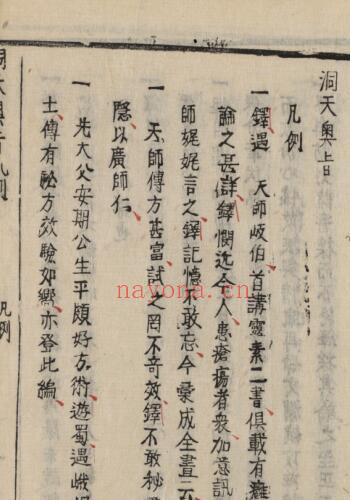 洞天奧旨
凡例
一 鐸遇 天師岐伯首講靈素二書俱載有癰
論之甚詳鐸憫近今人患瘡瘍者衆加意訊
師娓娓言之鐸記憶不敢忘今彙成全書
一 天師傳方甚富試之罔不奇效鐸不敢秘
隱以廣師仁
一 先大父安期公生平頗好方術遊蜀遇峨
士傳有秘方效驗如響亦登此編
凡例
nayona.cn